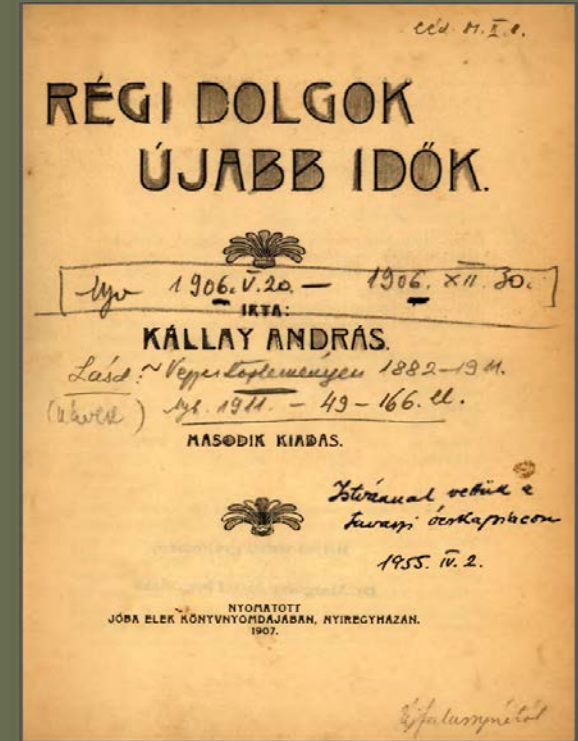 céd. 81. X. 8.
RÉGI DOLGOK
ÚJABB IDŐK.
1906. V. 20. — 1906. XII. 30.
IRTA:
KÁLLAY ANDRÁS.
Lásd: ~ Vegyes 1882–1911.
Nyh. 1911. – 49–166. ll.
MÁSODIK KIADÁS.
Istvánnal vettük a
tavaszi ócskapiacon
1955. IV. 2.
NYOMATOTT
JÓBA ELEK KÖNYVNYOMDÁJÁBAN, NYIREGYHÁZÁN.
1907.